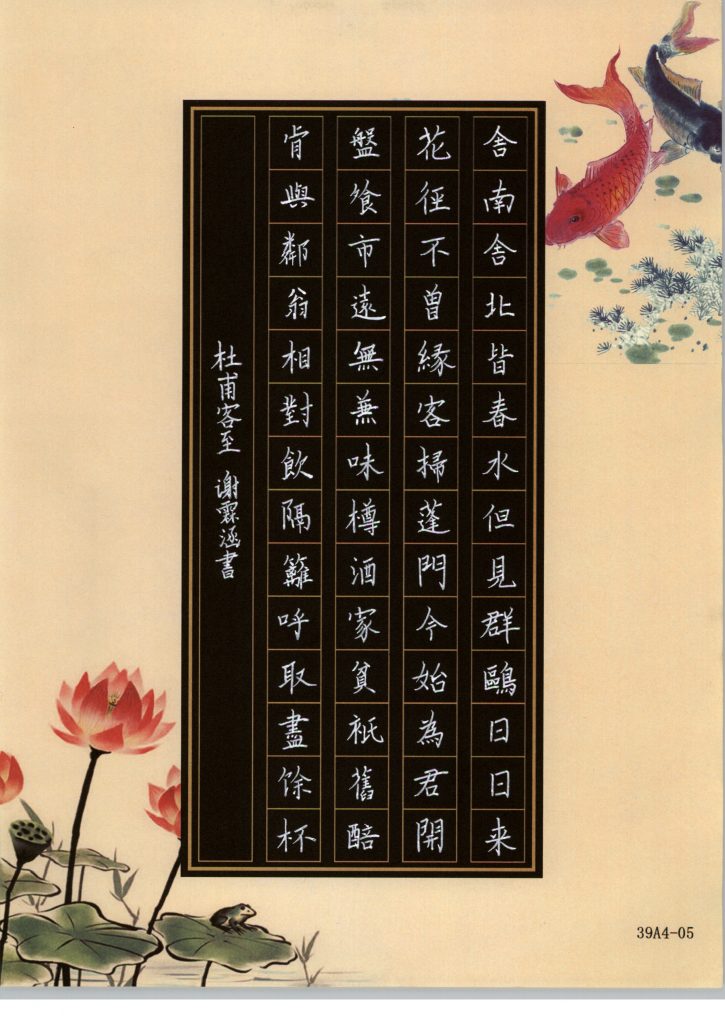 舎南舎北皆春水但見群鷗日日来
花徑不曾緣客掃蓬門今始為君開
盤飧市遠無兼味樽酒家貧衹舊醅
肯與鄰翁相對飲隔籬呼取盡馀杯
杜甫客至 谢霖涵書
39A4-05